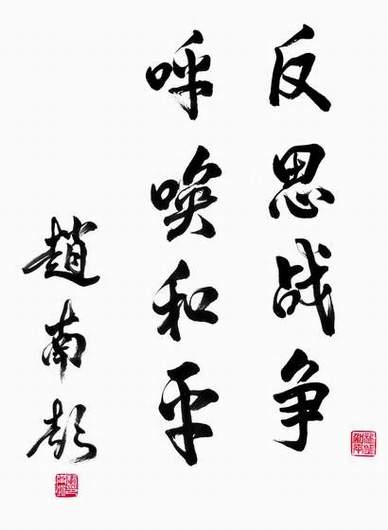 反思战争
呼唤和平
趙南起